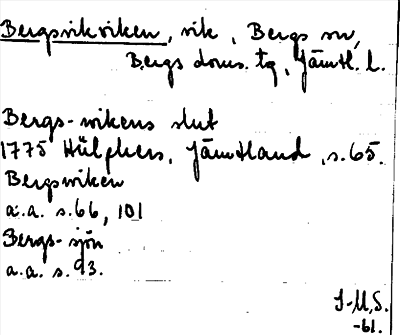 Bergsvikviken, vik, Bergs sn,
Bergs doms. tg, Jämtl. l.
Bergs-wikens slut
1775 Hülphers, Jämtland, s. 65.
Bergswiken
a.a. s. 66, 101
Bergs-sjön
a.a. s. 93.
I-M.S.
-61.